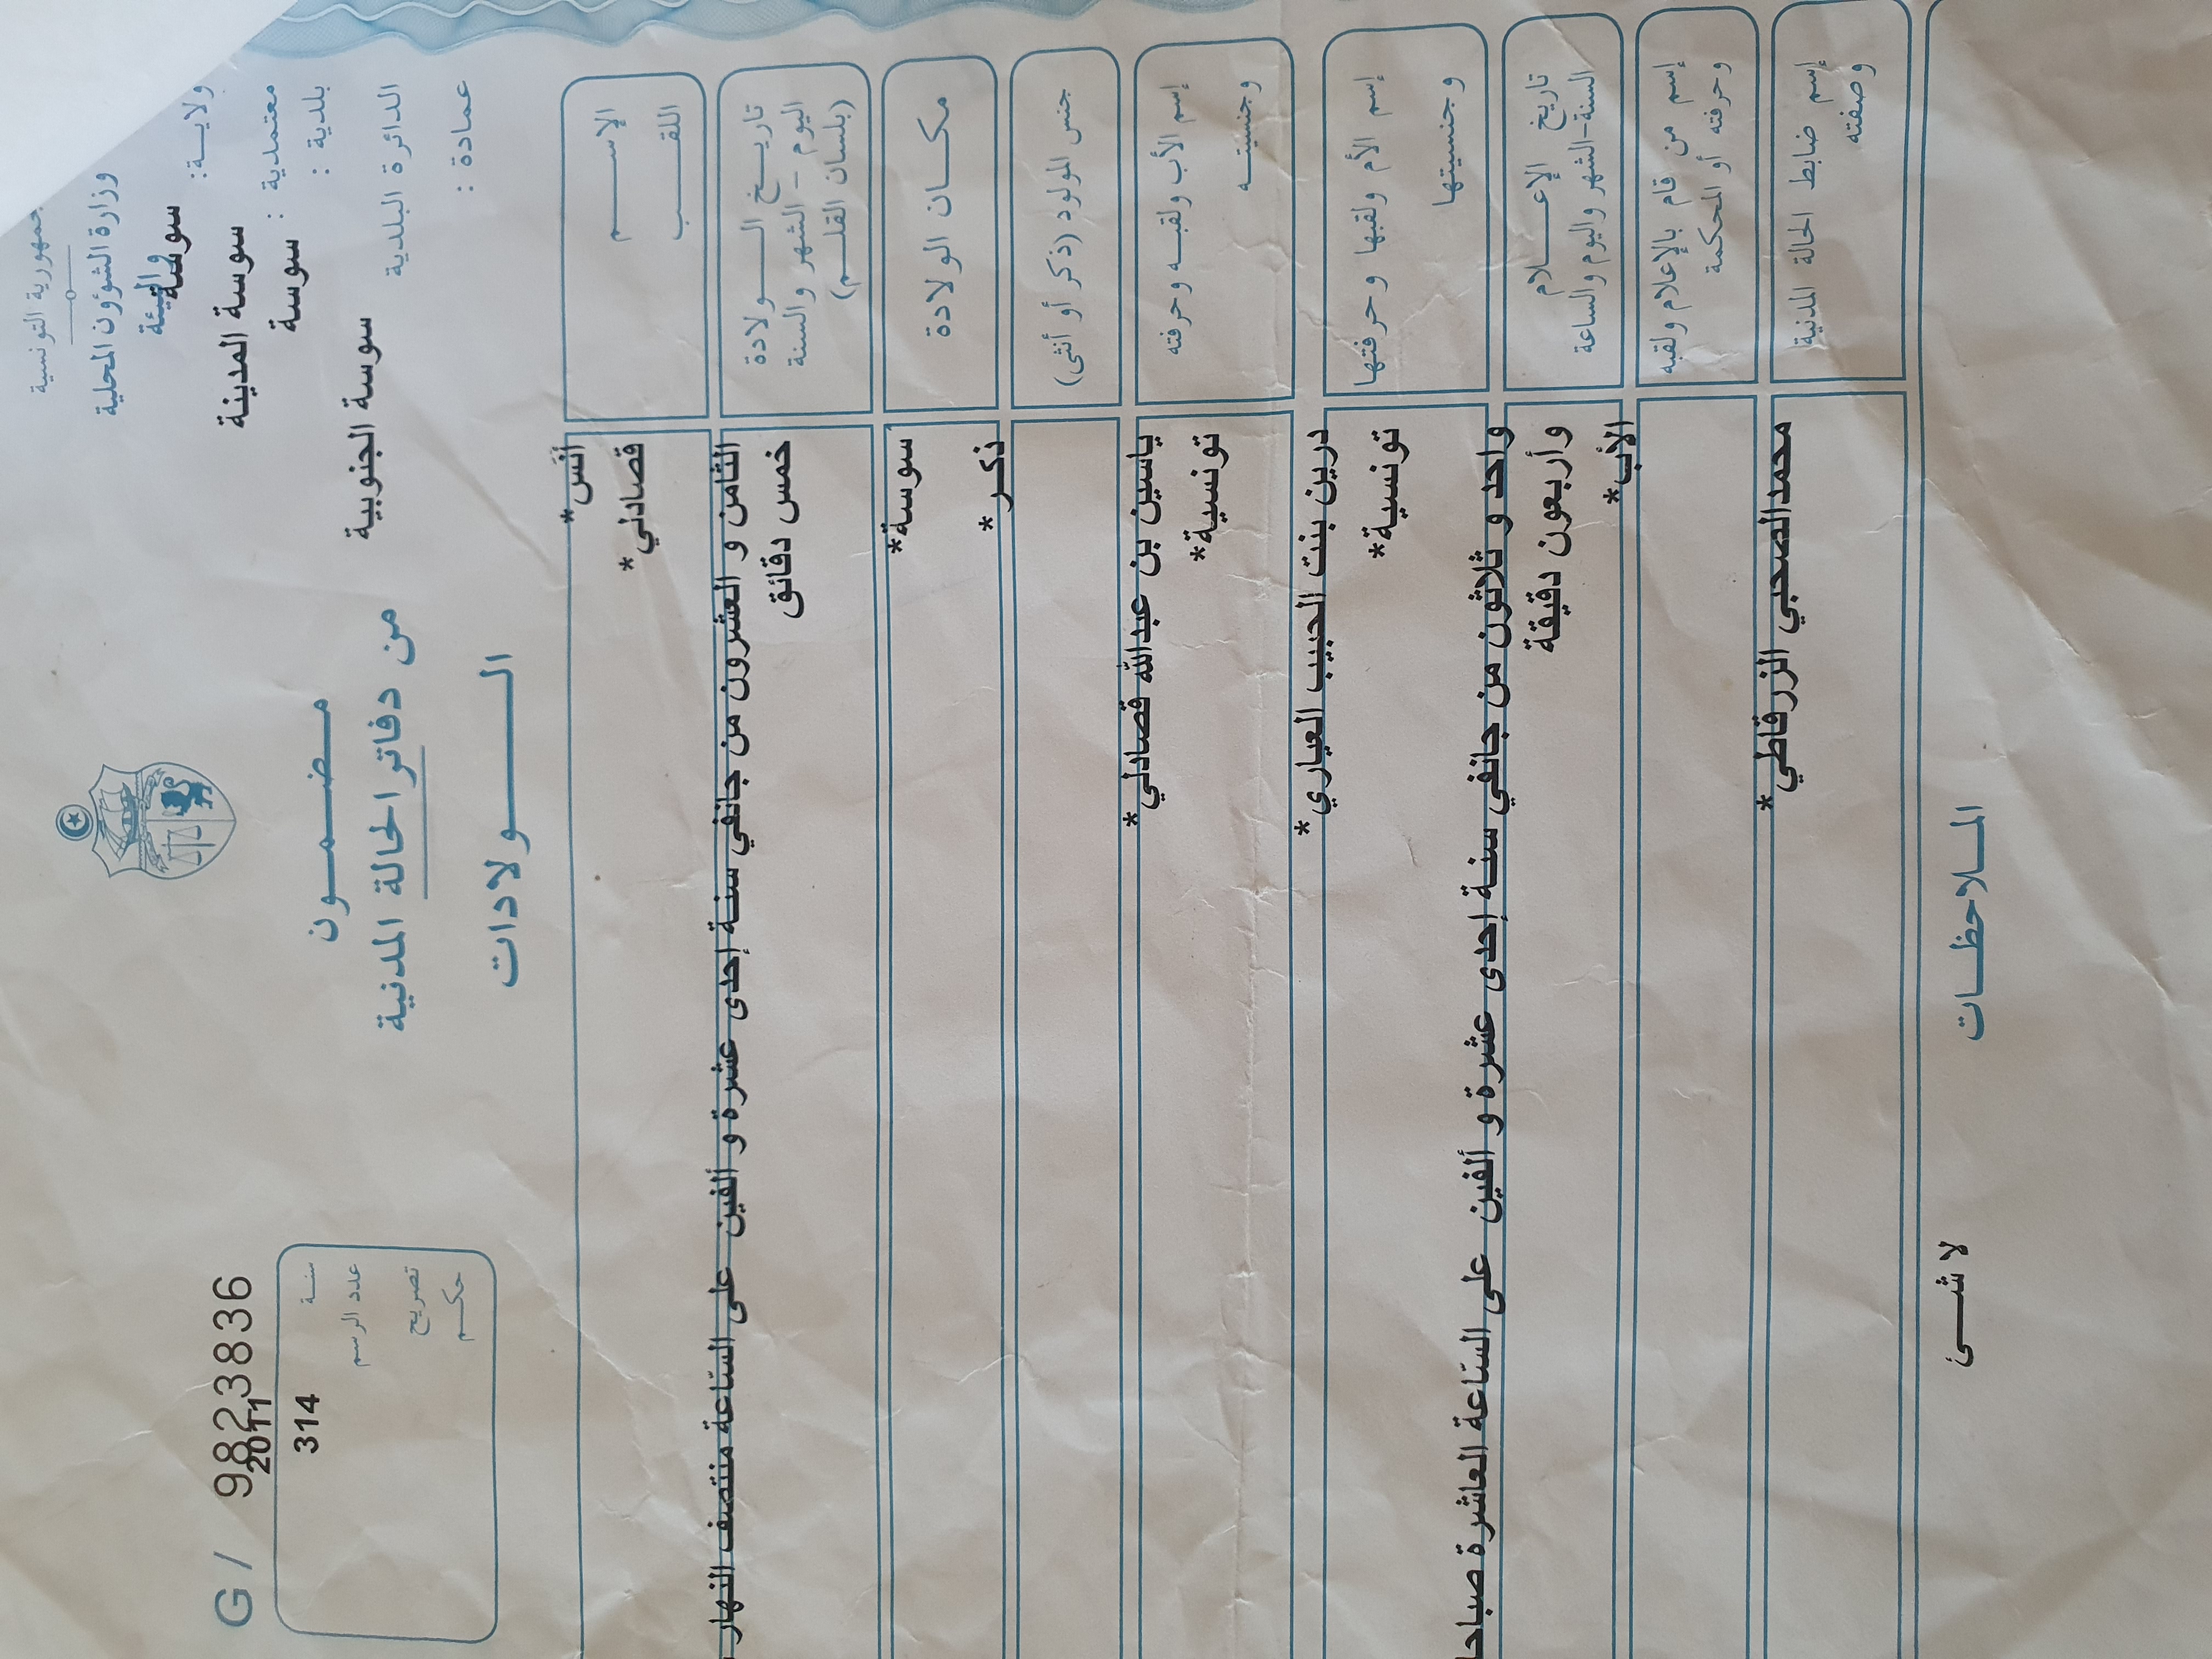 جمهورية التونسية
وزارة الشؤون المحلية
والبيئة
ولايــة: سوسة
معتمدية : سوسة المدينة
بلدية : سوسة
الدائرة البلدية سوسة الجنوبية
عمادة :
مضمـــون
من دفاتر الحالة المدنية
الـــولادات
G / 9823836
سنــة 2011
عدد الرسم 314
تصريح
حكـــم
الإســـــم أنس*
اللقـــب قصادلي*
تاريــخ الـــــولادة
اليوم - الشهر والسنة
(بلسان القلــم)
الثامن و العشرون من جانفي سنة إحدى عشرة و ألفين على الساعة منتصف النهار
خمس دقائق
مكــان الولادة سوسة*
جنس المولود (ذكر أو أنثى) ذكر*
إسم الأب ولقبــه وحرفته
وجنسيتــه
ياسين بن عبدالله قصادلي*
تونسية*
إسم الأم ولقبها وحرفتها
وجنسيتها
درين بنت الحبيب العياري*
تونسية*
تاريخ الإعـــلام
السنة-الشهر واليوم والساعة
واحد و ثلاثون من جانفي سنة إحدى عشرة و ألفين على الساعة العاشرة صباحا
وأربعون دقيقة
إسم من قام بالإعلام ولقبه
وحرفته أو المحكمة
الأب*
إسم ضابط الحالة المدنية
وصفته
محمدالصحبي الزرقاطي*
المــلاحظــات
لا شـــئ